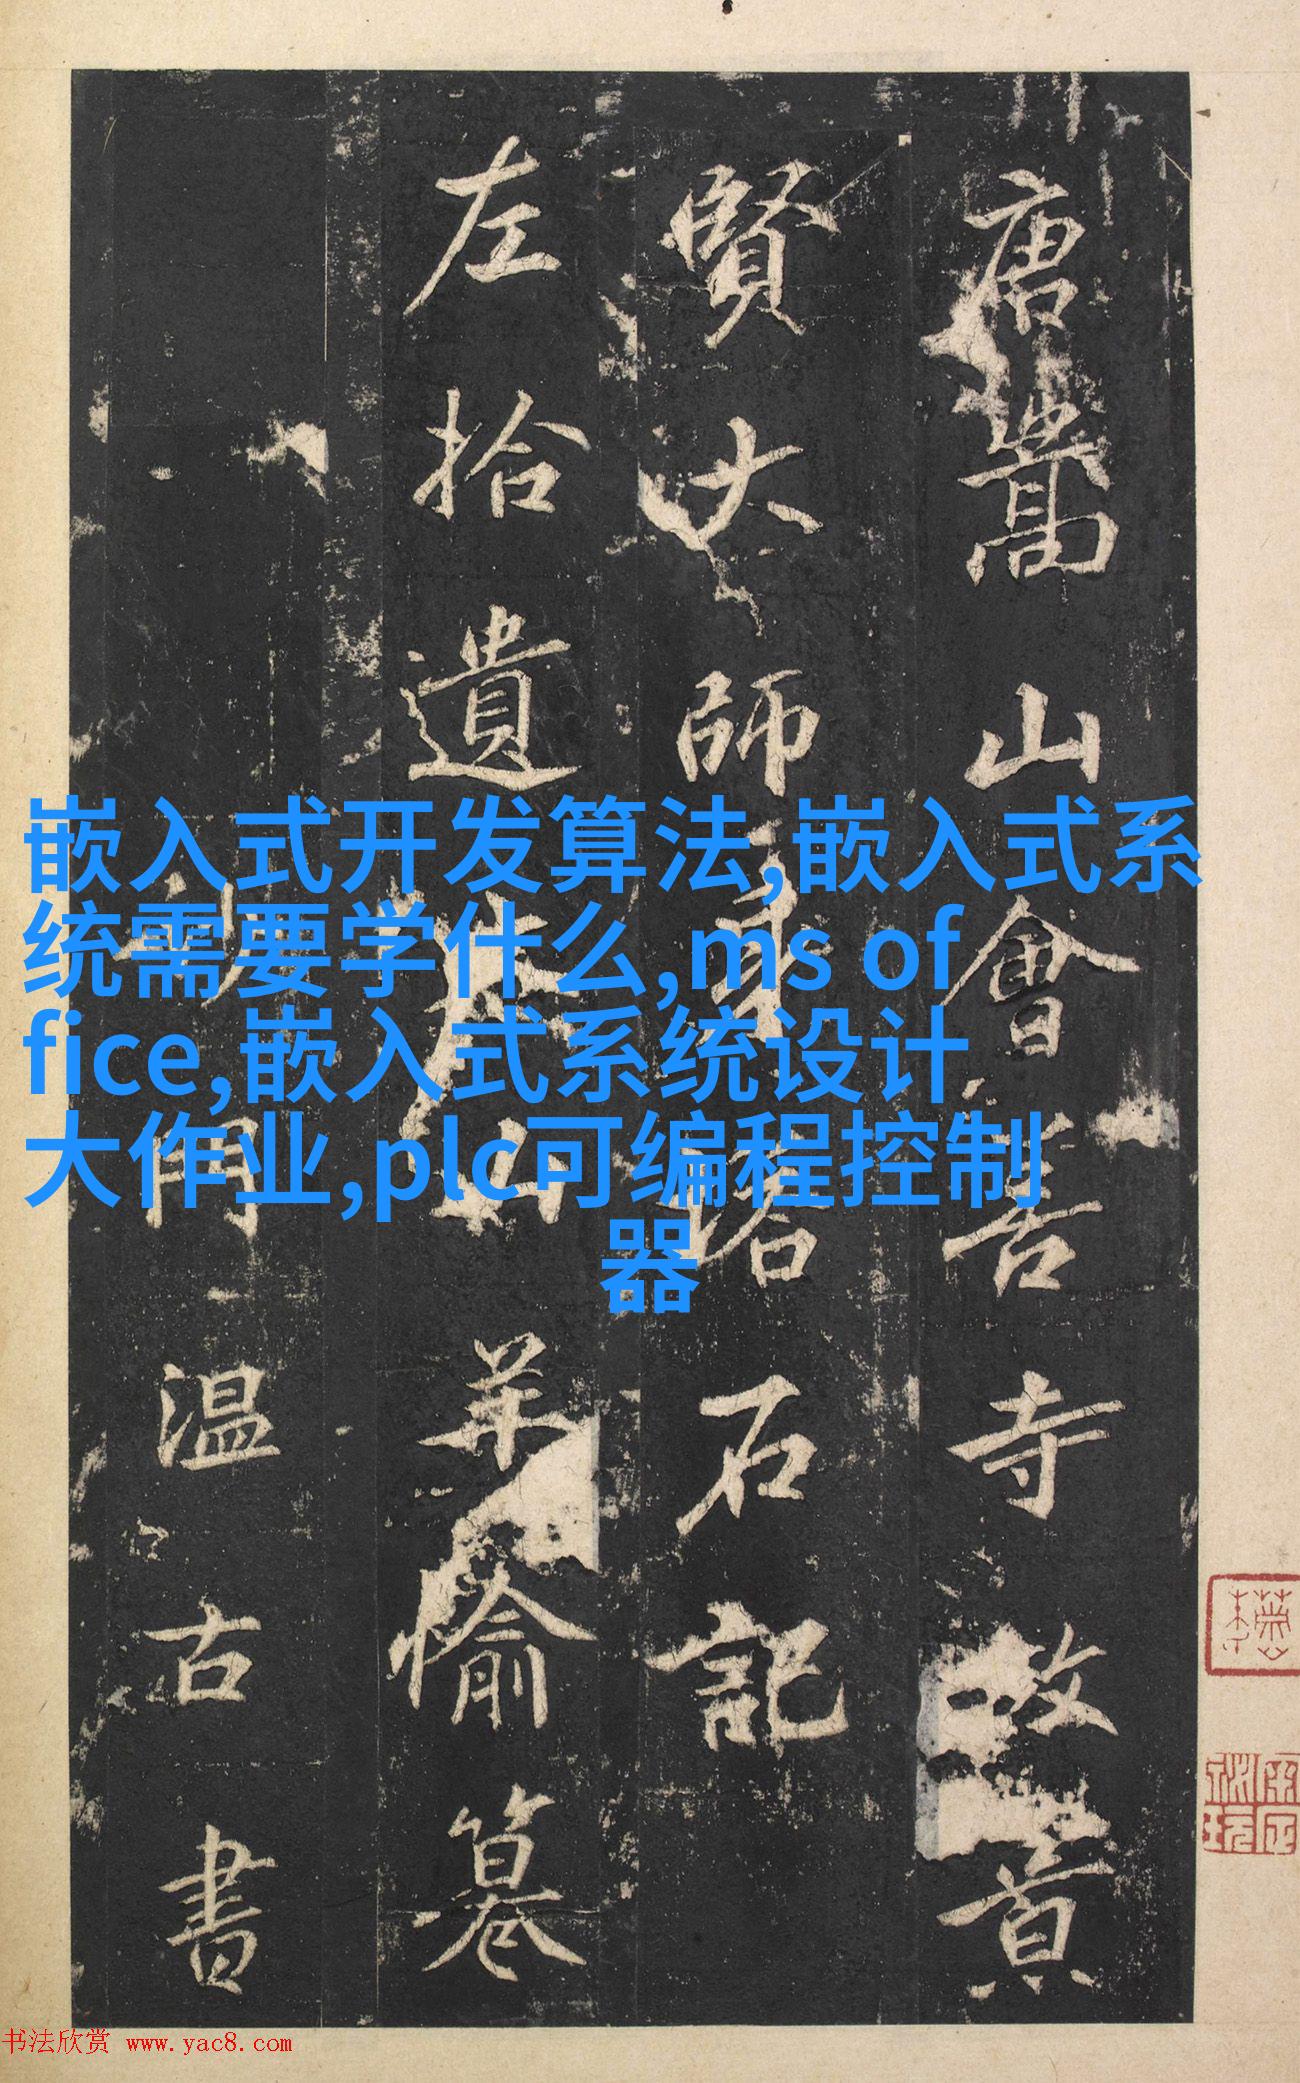 唐嵩山會善寺故景
賢大師身塔石記
左拾遺太山羊愉纂
沙門溫古書
嵌入式开发算法,嵌入式系
统需要学什么,ms of
fice,嵌入式系统设计
大作业,plc可编程控制
器
书法欣赏 www.yac8.com